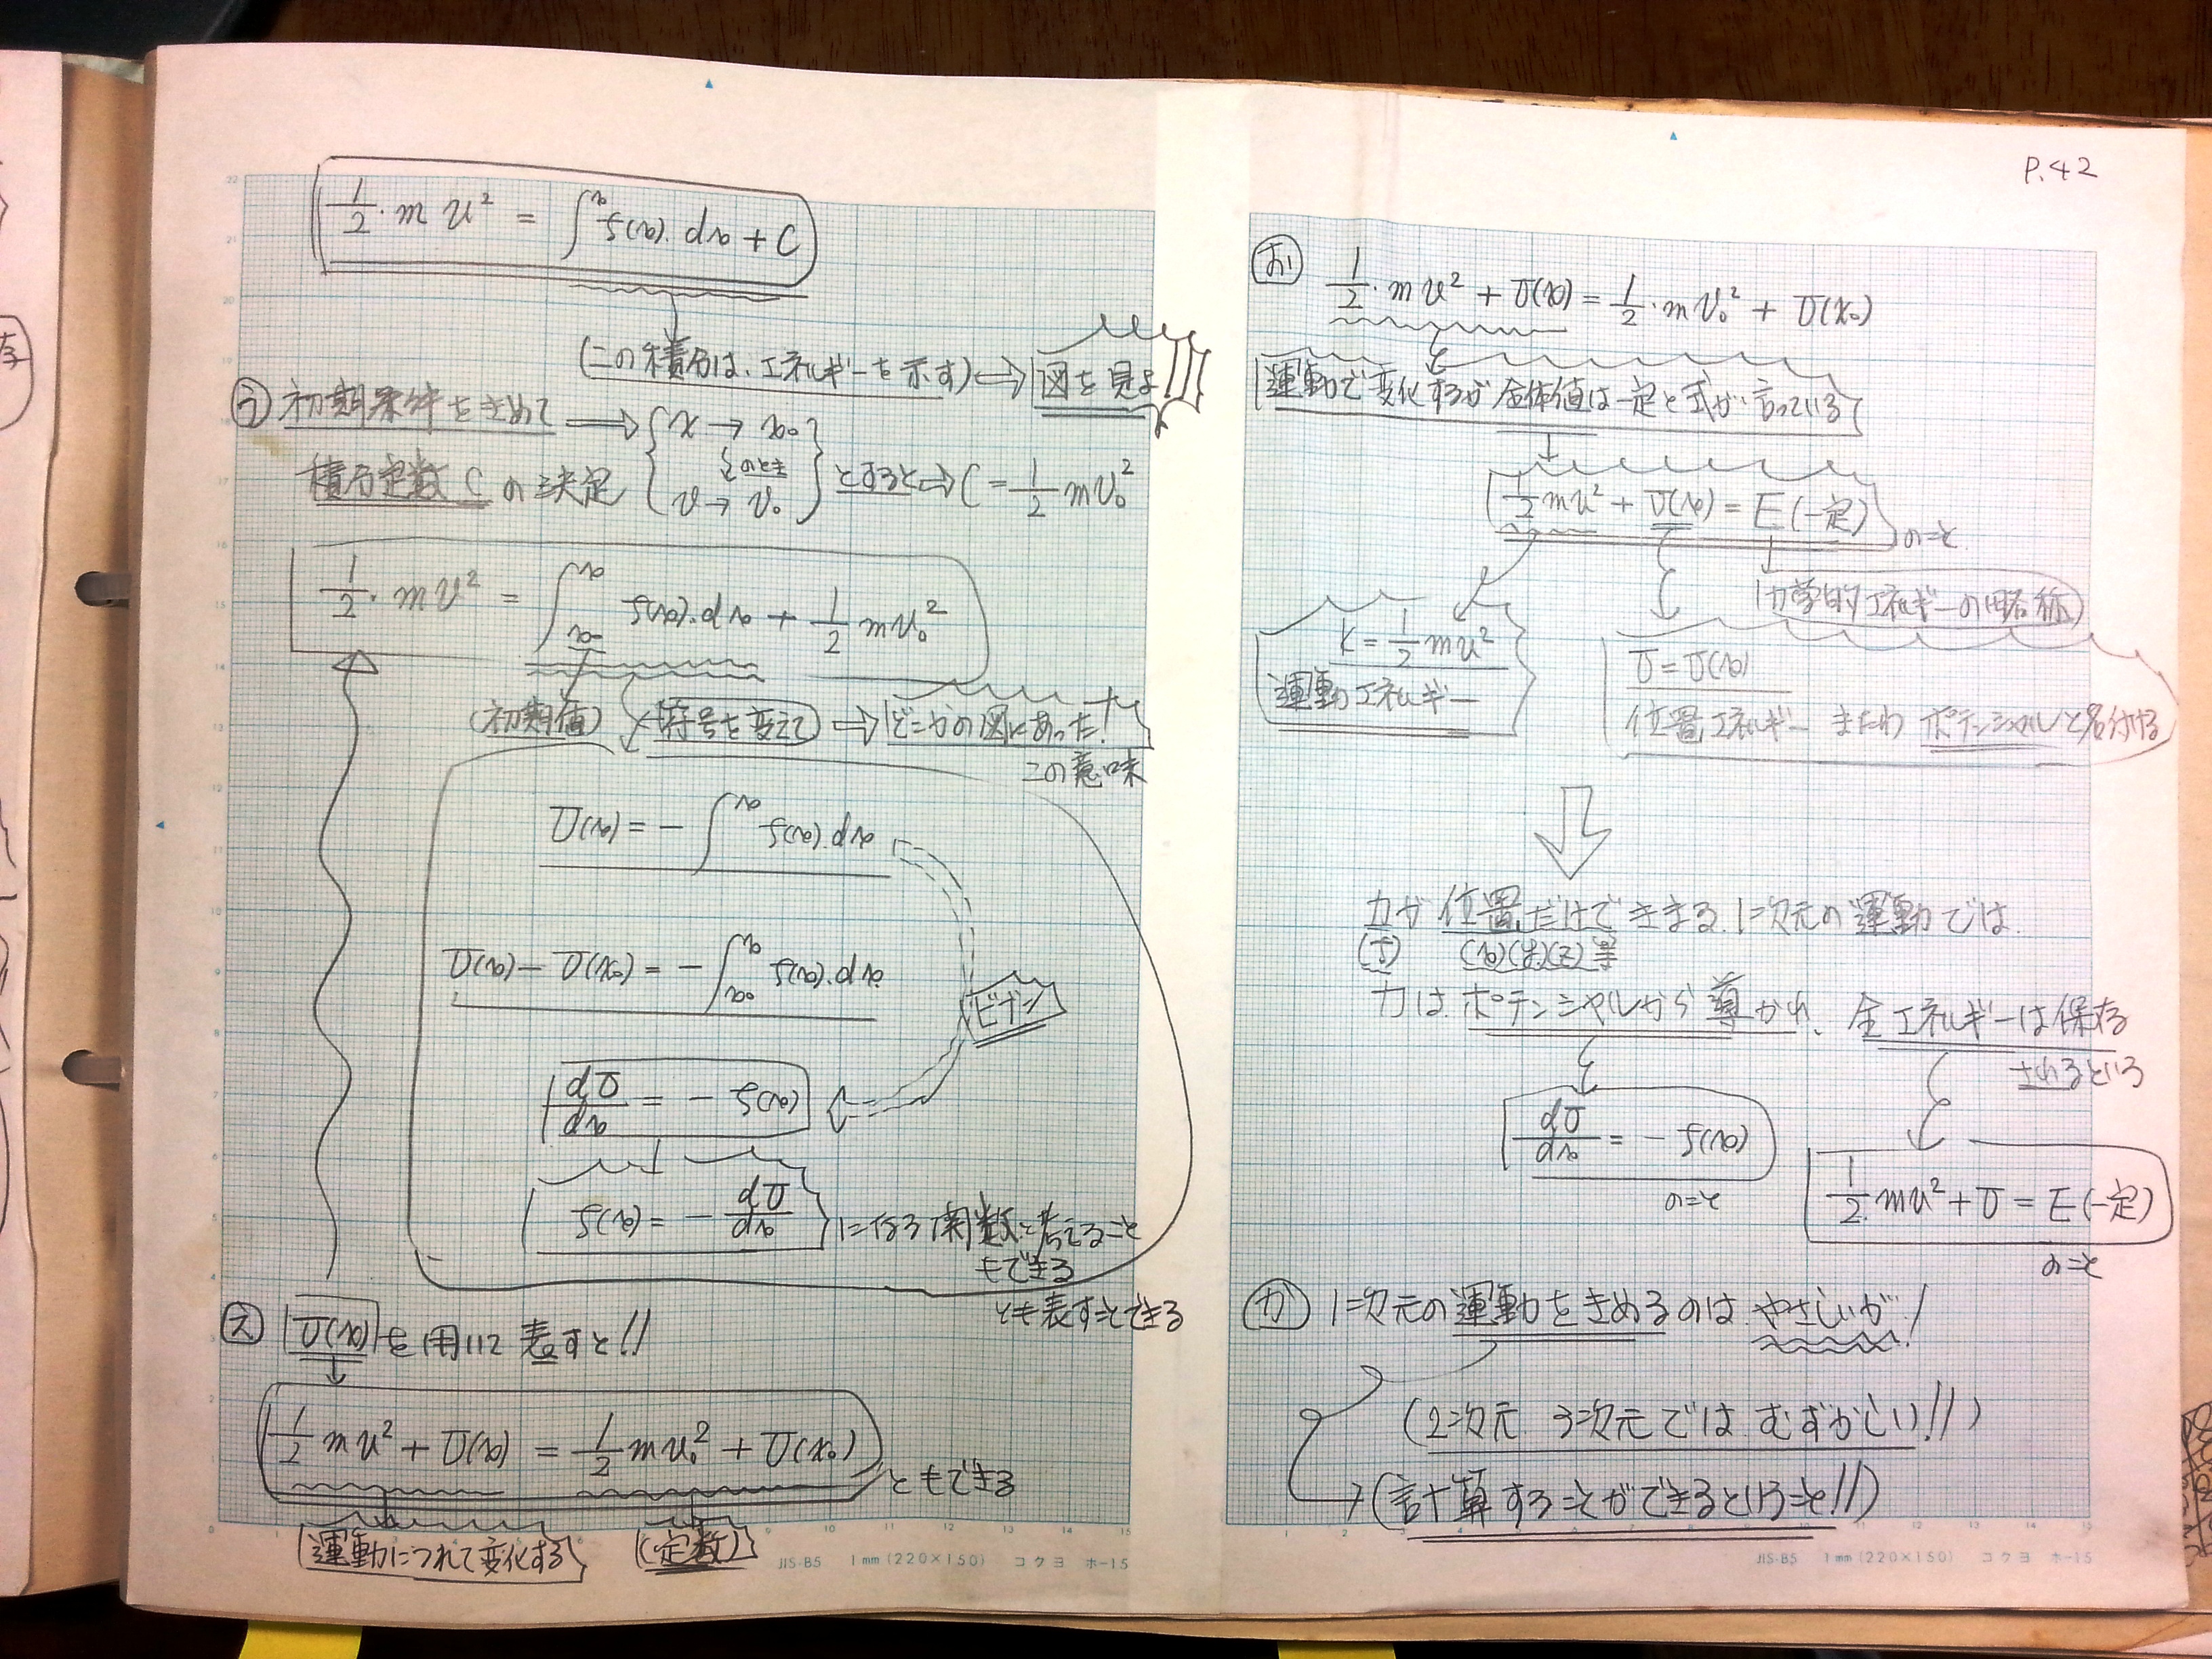 1/2・mv² = ∫^x f(x).dx + C
(この積分は、エネルギーを示す) → 図を見よ!!!
う 初期条件をきめて ⇒ { x → x₀
のとき
積分定数 C の決定 v → v₀ } とすると ⇒ C = 1/2 mv₀²
1/2・mv² = ∫_{x₀}^x f(x).dx + 1/2 mv₀²
(初期値) 符号を変えて ⇒ どこかの図にあった!
この意味
U(x) = - ∫^x f(x).dx
U(x) - U(x₀) = - ∫_{x₀}^x f(x).dx
ビブン
dU/dx = - f(x)
f(x) = - dU/dx になる関数と考えること
もできる
とも表すことできる
え U(x) を用いて表すと!!
1/2 mv² + U(x) = 1/2 mv₀² + U(x₀) ともできる
運動につれて変化する (定数)
JIS-B5 1mm (220×150) コクヨ ホ-15
P.42
お 1/2・mv² + U(x) = 1/2・mv₀² + U(x₀)
運動で変化するが全体値は一定と式が言っている
1/2 mv² + U(x) = E (一定) のこと
力学的エネルギーの略称
K = 1/2 mv²
運動エネルギー
U = U(x)
位置エネルギー またわ ポテンシャルと名付ける
力が位置だけできまる.1次元の運動では
(f) (x)(y)(z)等
力はポテンシャルから導かれ、全エネルギーは保存
されるという
dU/dx = - f(x)
のこと
1/2 mv² + U = E (一定)
のこと
か 1次元の運動をきめるのは やさしいが!
(2次元 3次元では むずかしい!!)
→ (計算することができるということ!!)
JIS-B5 1mm (220×150) コクヨ ホ-15